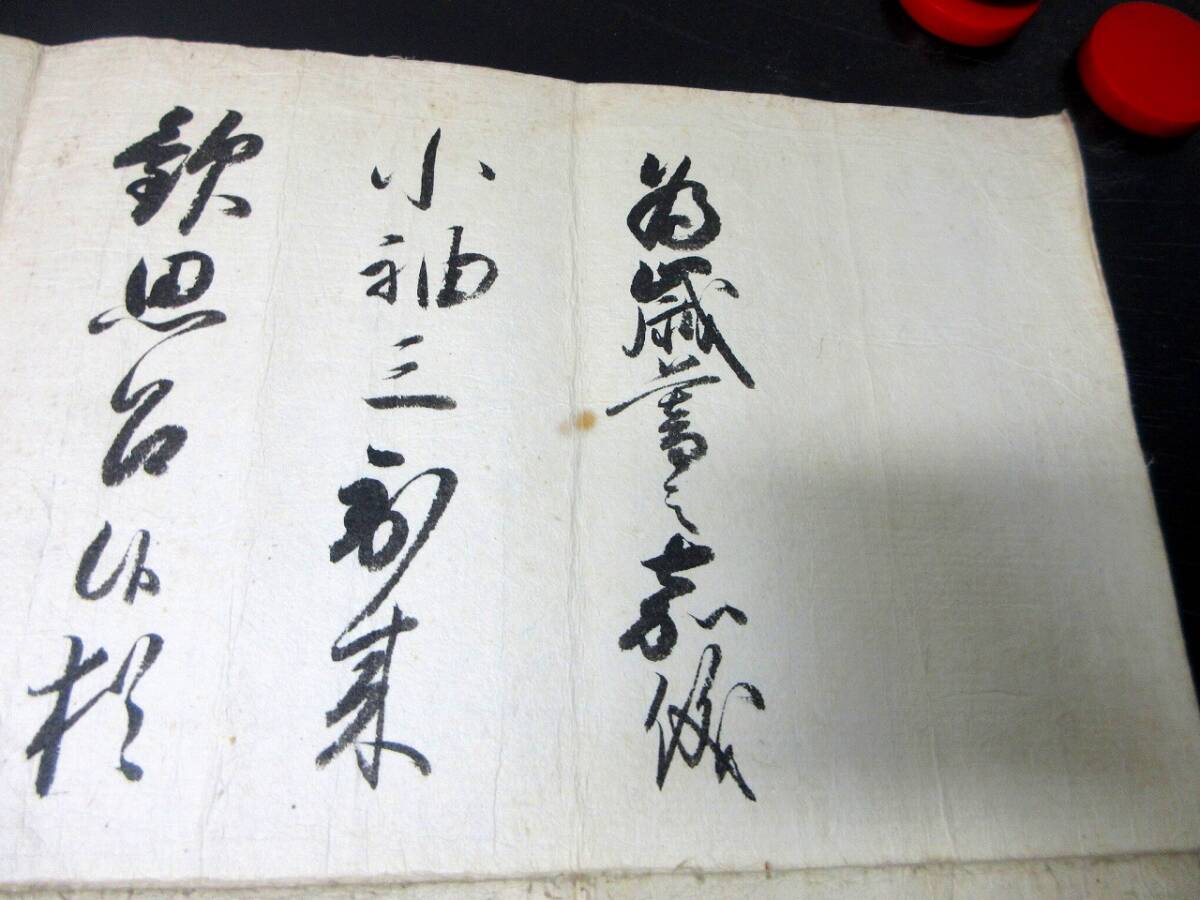 為歳暮之嘉儀
小袖三到来
歓思召候猶